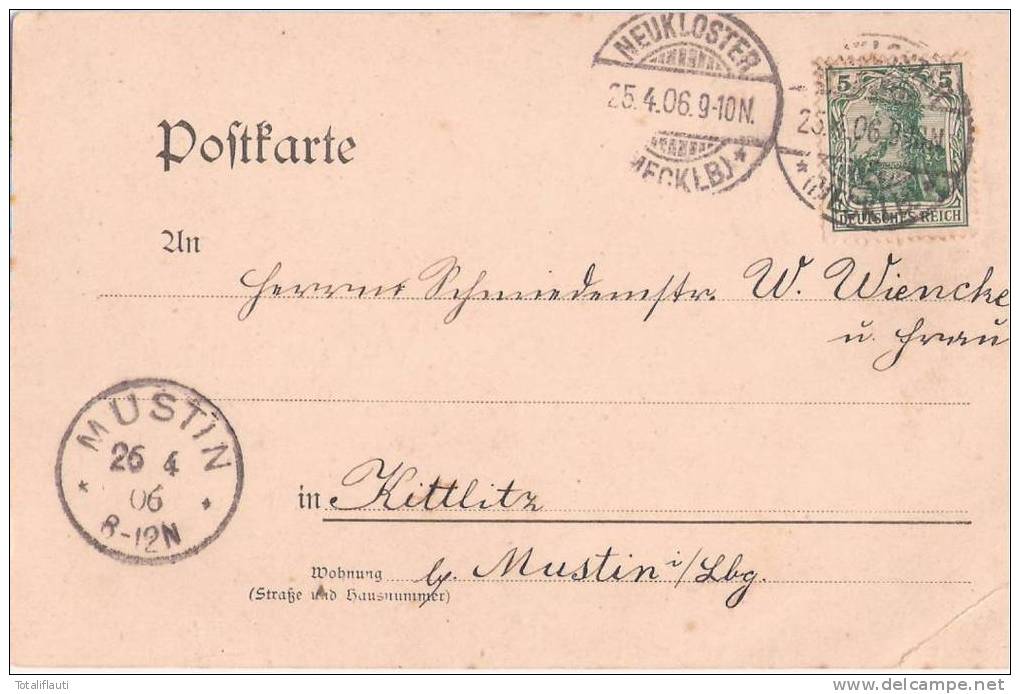 NEUKLOSTER
25.4.06.9-10N.
(MECKLB)
5 5
25.4.06.9-10N.
DEUTSCHES REICH
Postkarte
An
Herrn Schmiedemstr. W. Wiencke
u. Frau
MUSTIN
26 4
06
8-12N
in Kittlitz
Wohnung
(Straße und Hausnummer)
b/. Mustin i/Lbg.
Totaliflauti
delcampe.net